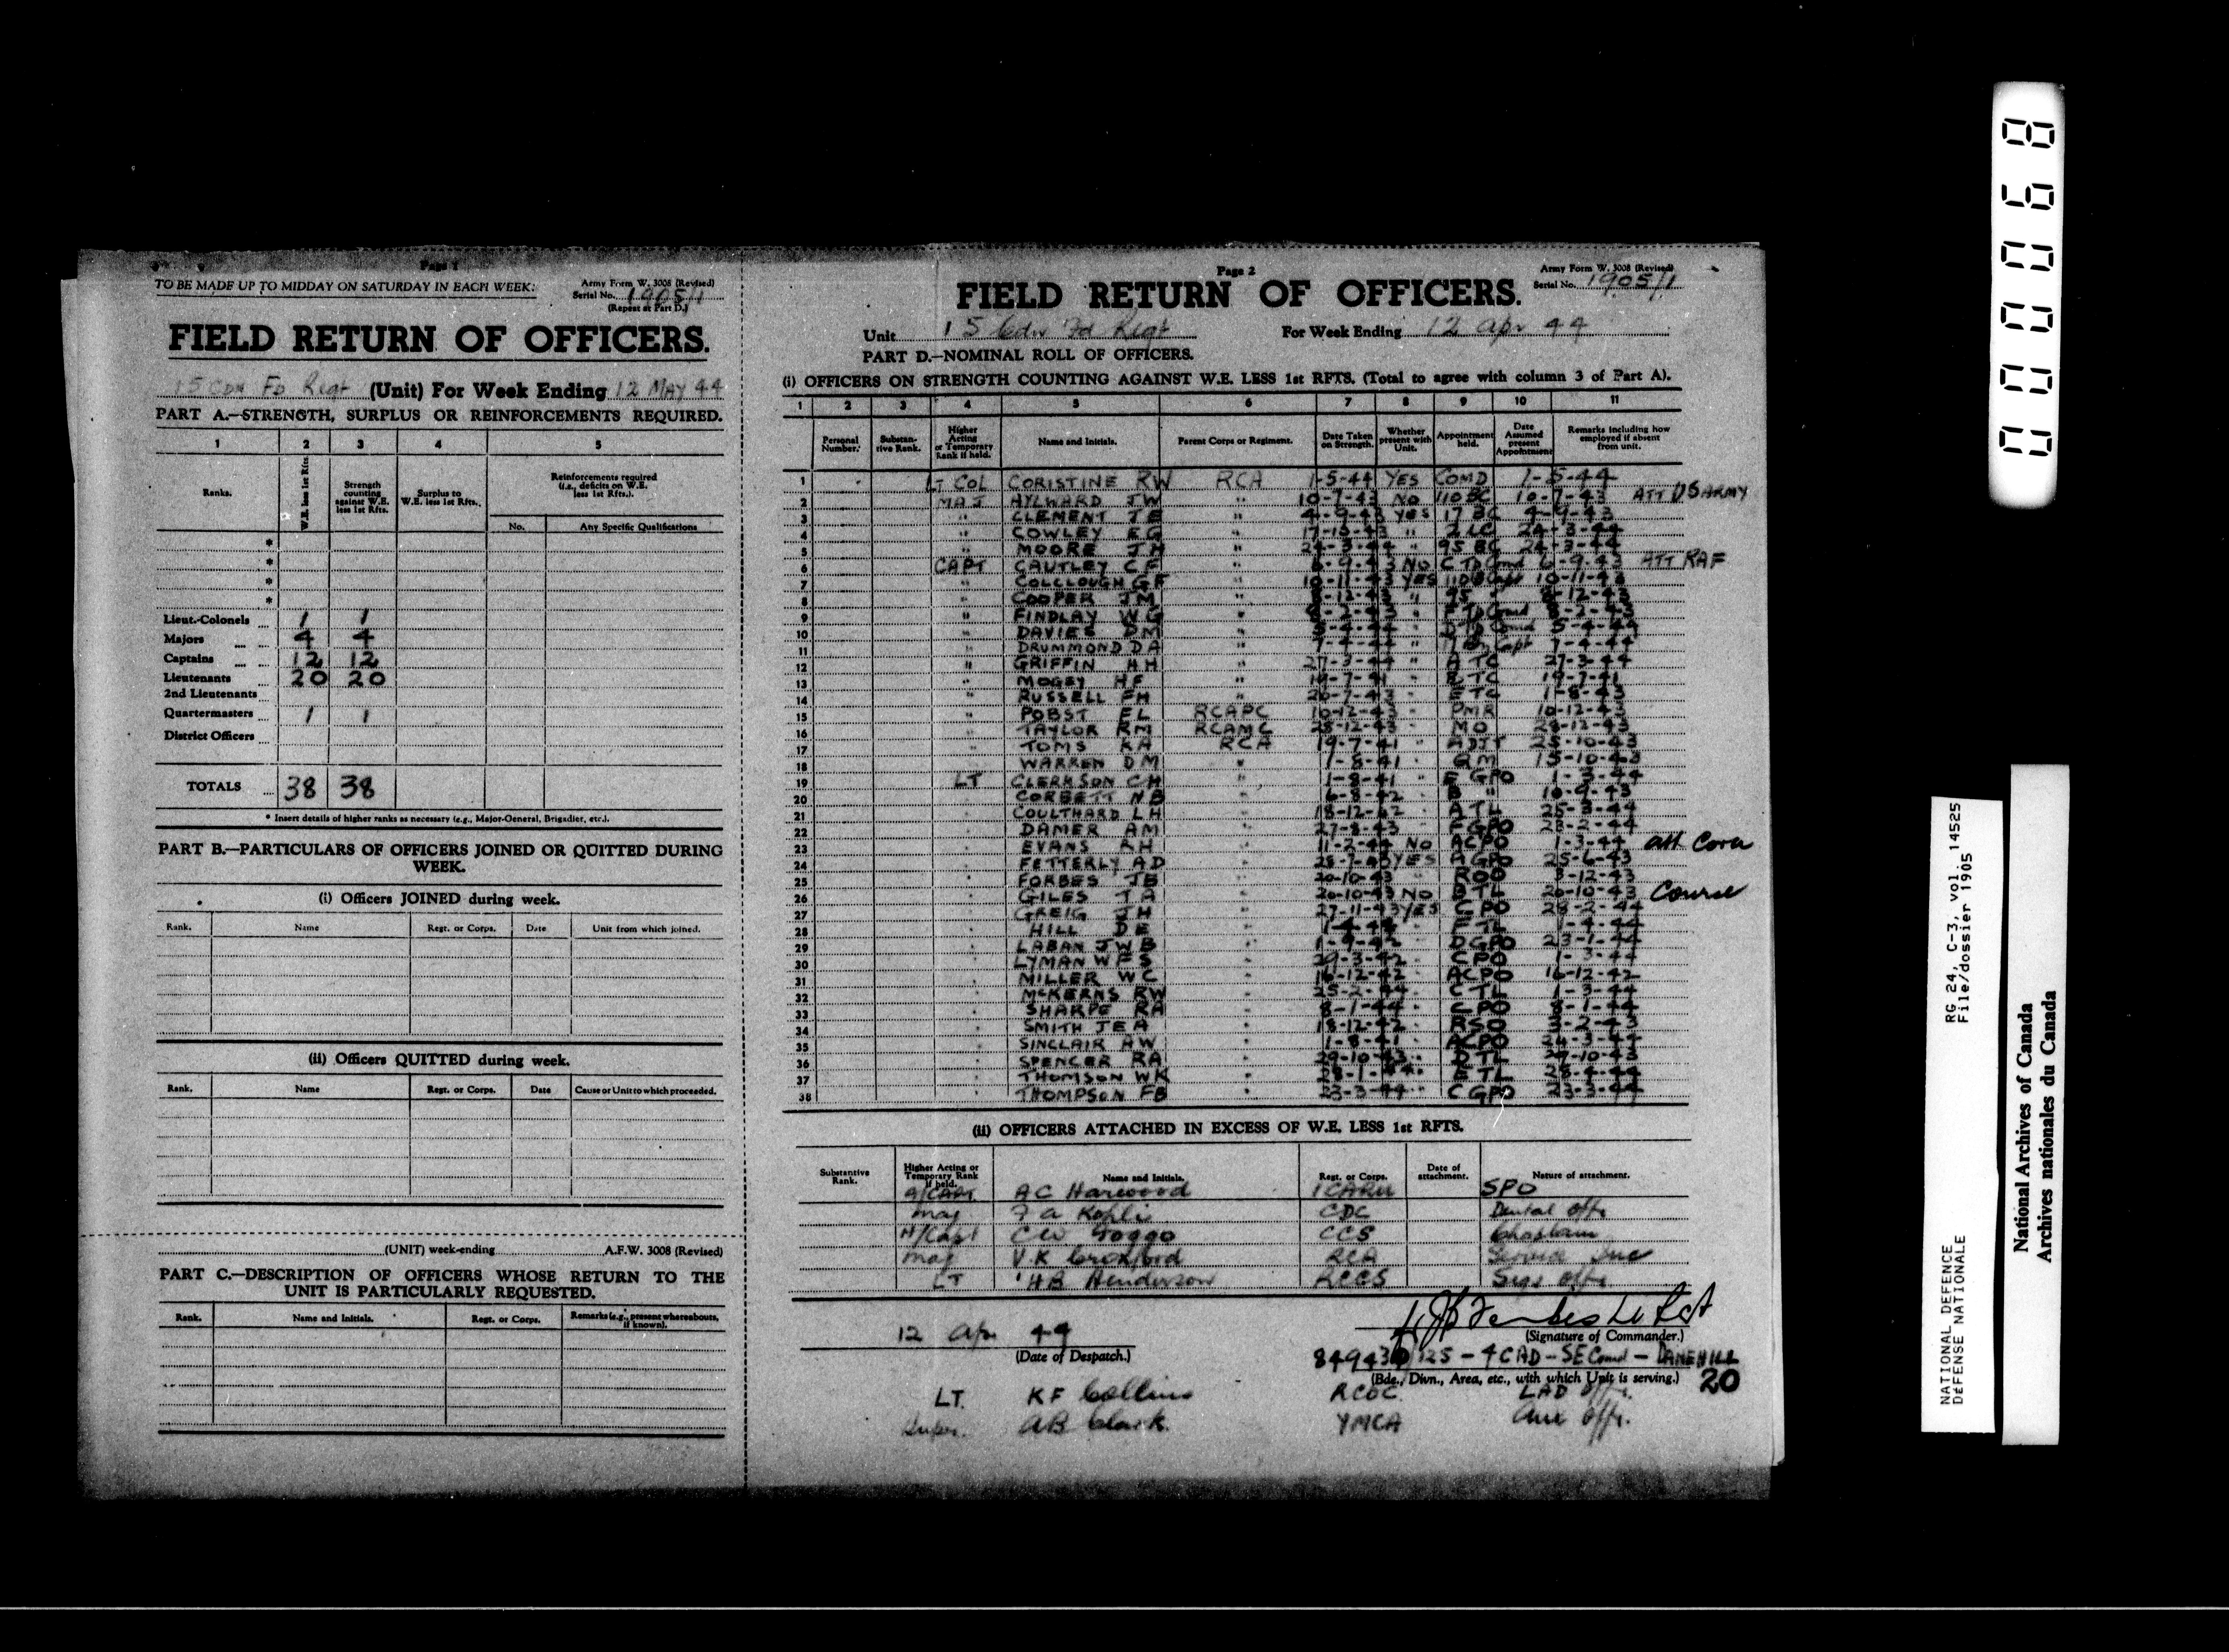 Page 1
TO BE MADE UP TO MIDDAY ON SATURDAY IN EACH WEEK.
Army Form W. 3008 (Revised)
Serial No. 1905/1
(Repeat at Part D.)
FIELD RETURN OF OFFICERS.
15 CDN FD Regt (Unit) For Week Ending 12 MAY 44
PART A.—STRENGTH, SURPLUS OR REINFORCEMENTS REQUIRED.
1 2 3 4 5
Ranks. W.E. less 1st Rfts. Strength counting against W.E. less 1st Rfts. Surplus to W.E. less 1st Rfts. Reinforcements required (i.e., deficits on W.E. less 1st Rfts.).
No. Any Specific Qualifications
*
*
*
*
Lieut.-Colonels 1 1
Majors 4 4
Captains 12 12
Lieutenants 20 20
2nd Lieutenants
Quartermasters 1 1
District Officers
TOTALS 38 38
* Insert details of higher ranks as necessary (e.g., Major-General, Brigadier, etc.).
PART B.—PARTICULARS OF OFFICERS JOINED OR QUITTED DURING WEEK.
(i) Officers JOINED during week.
Rank. Name Regt. or Corps. Date Unit from which joined.
(ii) Officers QUITTED during week.
Rank. Name Regt. or Corps. Date Cause or Unit to which proceeded.
(UNIT) week-ending A.F.W. 3008 (Revised)
PART C.—DESCRIPTION OF OFFICERS WHOSE RETURN TO THE UNIT IS PARTICULARLY REQUESTED.
Rank. Name and Initials. Regt. or Corps. Remarks (e.g., present whereabouts, if known).
Page 2
Army Form W. 3008 (Revised)
Serial No. 1905/1
FIELD RETURN OF OFFICERS.
Unit 15 Cdn Fd Regt For Week Ending 12 Apr 44
PART D.—NOMINAL ROLL OF OFFICERS.
(i) OFFICERS ON STRENGTH COUNTING AGAINST W.E. LESS 1st RFTS. (Total to agree with column 3 of Part A).
1 2 3 4 5 6 7 8 9 10 11
Personal Number. Substantive Rank. Higher Acting or Temporary Rank if held. Name and Initials. Parent Corps or Regiment. Date Taken on Strength. Whether present with Unit. Appointment held. Date Assumed present Appointment Remarks including how employed if absent from unit.
1 LT COL CORISTINE RW RCA 1-5-44 YES COMD 1-5-44
2 MAJ AYLWARD JW " 10-7-43 NO 110 BC 10-7-43 ATT US ARMY
3 " CLEMENT JE " 4-9-43 YES 17 BC 4-9-43
4 " COWLEY EG " 2 LC 24-3-44
5 " MOORE JH " 24-3-44 " 95 BC 24-3-44
6 CAPT CAUTLEY CF " 6-9-43 NO C Tp Comd 6-9-43 ATT RAF
7 " COLCLOUGH GF " 10-11-43 YES 10-11-43
8 " COOPER JM "
9 " FINDLAY WG "
10 " DAVIES DM " 5-4-44
11 " DRUMMOND DA " 7-4-44
12 " GRIFFIN HH " 27-3-44 " A TC 27-3-44
13 " MOGEY HF " 19-7-41 " B TC 19-7-41
14 " RUSSELL FH " 20-7-43 " E TC 1-8-43
15 " POBST EL RCAPC 10-12-43 " PMR 10-12-43
16 " TAYLOR RM RCAMC 28-12-43 " MO 28-12-43
17 " TOMS KA RCA 19-7-41 " ADJT 25-10-43
18 WARREN DM " 1-8-41 " QM 15-10-43
19 LT CLERKSON CH " 1-8-41 " E GPO 1-3-44
20 CORBETT NB " B "
21 COULTHARD LH " 18-12-42 A TL 25-3-44
22 DAMER AM " 27-8-43 F GPO 23-2-44
23 EVANS RH " 11-2-44 NO ACPO 1-3-44 att Cova
24 FETTERLY AD " YES A GPO 25-6-43
25 FORBES JB " 20-10-43 " RDO 3-12-43
26 GILES TA " 20-10-43 NO B TL 20-10-43 Course
27 GREIG JH " 27-11-43 YES CPO 28-2-44
28 HILL DE " 1-4-44 F TL 1-4-44
29 LABAN JWB " 1-9-42 " DGPO 23-1-44
30 LYMAN WFS " 29-3-42 CPO 1-3-44
31 MILLER WC " 16-12-42 ACPO 16-12-42
32 McKERNS RW " 25-2-44 C TL 1-3-44
33 SHARPE RA " 8-1-44 CPO 8-1-44
34 SMITH JEA " 18-12-42 RSO 3-2-43
35 SINCLAIR HW " 1-8-41 ACPO 24-3-44
36 SPENCER RA " 29-10-43 D TL 29-10-43
37 THOMSON WK " E TL 28-4-44
38 THOMPSON FB " 23-3-44 C GPO 23-3-44
(ii) OFFICERS ATTACHED IN EXCESS OF W.E. LESS 1st RFTS.
Substantive Rank. Higher Acting or Temporary Rank if held. Name and Initials. Regt. or Corps. Date of attachment. Nature of attachment.
A/CAPT AC Harwood 1CARU SPO
Maj F A Kohli CDC Dental Offr
H/Capt CW Foggo CCS Chaplain
Maj V.K Croxford RCA
LT HB Henderson RCCS Sigs Offr
12 Apr 44
(Date of Despatch.)
(Signature of Commander.)
849430/125 - 4 CAD - SE Comd - DANEHILL
(Bde., Divn., Area, etc., with which Unit is serving.) 20
LT. KF Collins RCOC LAD Offr.
Super. AB Clark YMCA Aux Offr.
000068
NATIONAL DEFENCE RG 24, C-3, vol. 14525
DÉFENSE NATIONALE File/dossier 1905
National Archives of Canada
Archives nationales du Canada